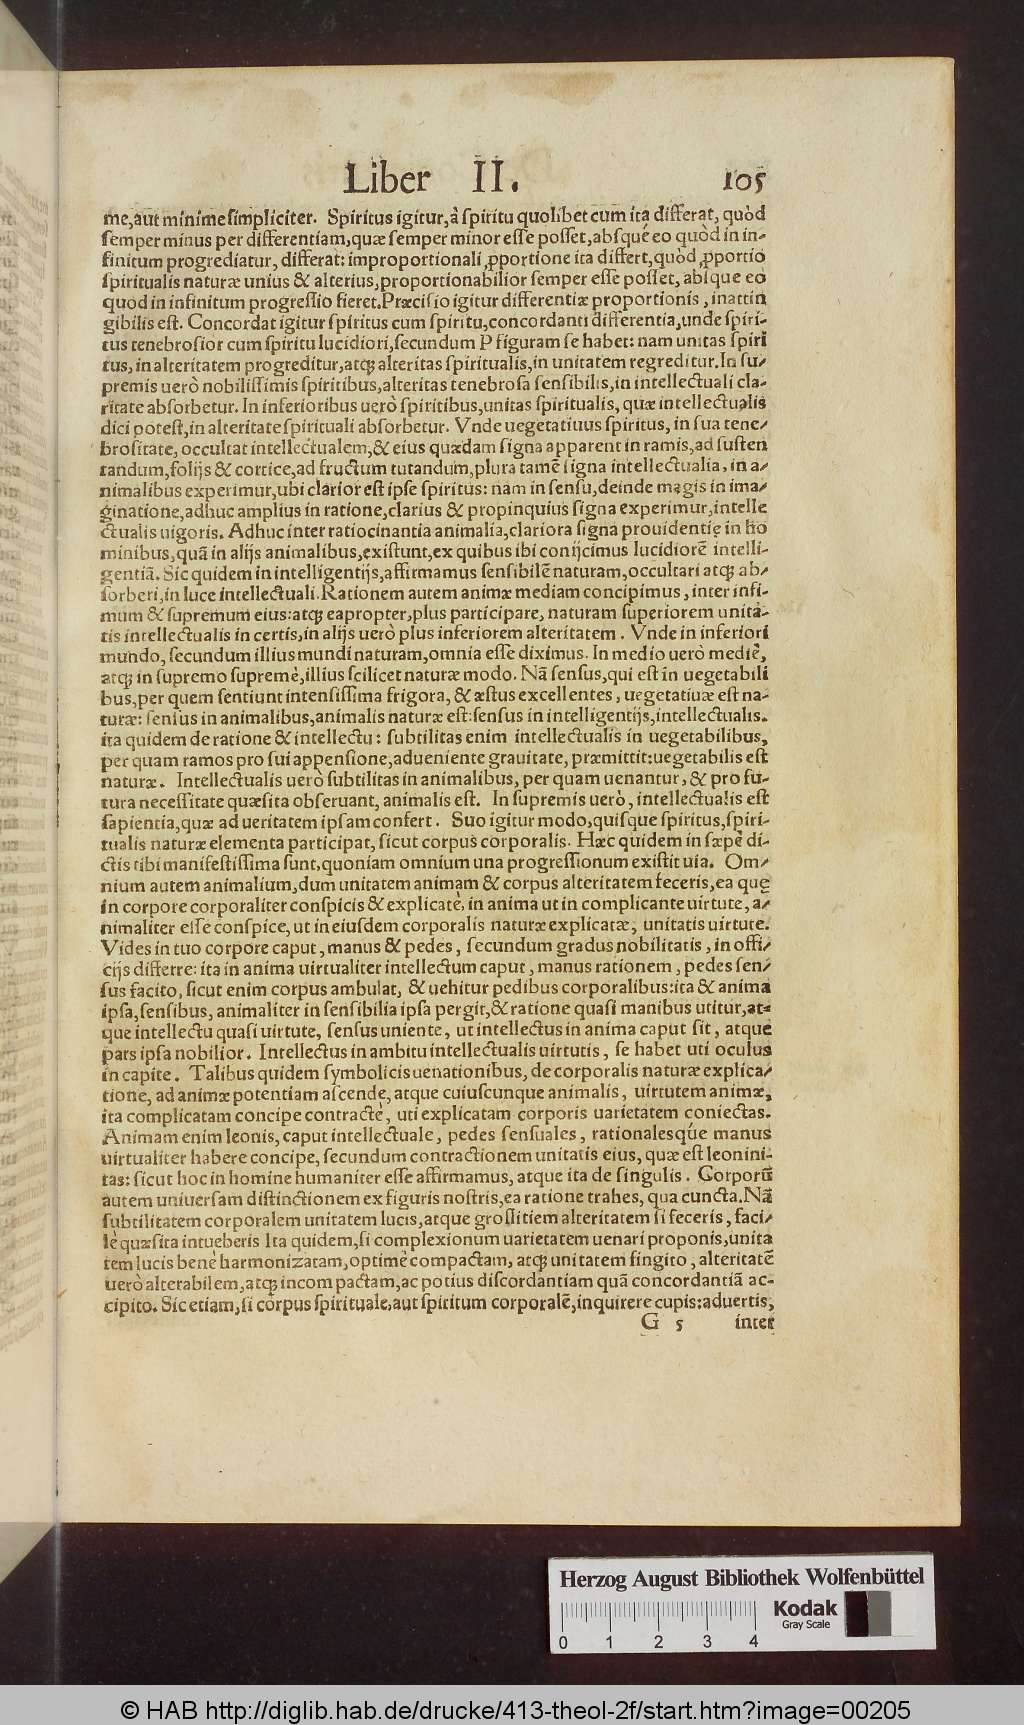 Liber II. 105
me,aut minime simpliciter. Spiritus igitur,à spiritu quolibet cum ita differat, quòd
semper minus per differentiam,quæ semper minor esse posset,absque eo quòd in in-
finitum progrediatur, differat: improportionali ꝓportione ita differt,quòd ꝓportio
spiritualis naturæ unius & alterius,proportionabilior semper esse posset, absque eo
quod in infinitum progressio fieret.Præcisio igitur differentiæ proportionis, inattin
gibilis est. Concordat igitur spiritus cum spiritu,concordanti differentia,unde spiri-
tus tenebrosior cum spiritu lucidiori,secundum P figuram se habet: nam unitas spiri
tus, in alteritatem progreditur,atq; alteritas spiritualis,in unitatem regreditur.In su-
premis uerò nobilissimis spiritibus,alteritas tenebrosa sensibilis,in intellectuali cla-
ritate absorbetur. In inferioribus uerò spiritibus,unitas spiritualis, quæ intellectualis
dici potest,in alteritate spirituali absorbetur. Vnde uegetatiuus spiritus, in sua tene-
brositate, occultat intellectualem,& eius quædam signa apparent in ramis,ad susten
tandum,folijs & cortice,ad fructum tutandum,plura tamē signa intellectualia, in a-
nimalibus experimur,ubi clarior est ipse spiritus: nam in sensu,deinde magis in ima-
ginatione,adhuc amplius in ratione,clarius & propinquius signa experimur,intelle
ctualis uigoris. Adhuc inter ratiocinantia animalia,clariora signa prouidentię in ho
minibus,quā in alijs animalibus,existunt,ex quibus ibi conijcimus lucidiorē intelli-
gentiā. Sic quidem in intelligentijs,affirmamus sensibilē naturam,occultari atq; ab-
sorberi,in luce intellectuali.Rationem autem animæ mediam concipimus, inter infi-
mum & supremum eius:atq; eapropter,plus participare, naturam superiorem unita-
tis intellectualis in certis,in alijs uerò plus inferiorem alteritatem. Vnde in inferiori
mundo, secundum illius mundi naturam,omnia esse diximus. In medio uerò mediè,
atq; in supremo supremè,illius scilicet naturæ modo. Nā sensus,qui est in uegetabili
bus,per quem sentiunt intensissima frigora, & æstus excellentes, uegetatiuæ est na-
turæ: sensus in animalibus,animalis naturæ est:sensus in intelligentijs,intellectualis.
ita quidem de ratione & intellectu: subtilitas enim intellectualis in uegetabilibus,
per quam ramos pro sui appensione,adueniente grauitate, præmittit:uegetabilis est
naturæ. Intellectualis uerò subtilitas in animalibus, per quam uenantur, & pro fu-
tura necessitate quæsita obseruant, animalis est. In supremis uerò, intellectualis est
sapientia,quæ ad ueritatem ipsam confert. Suo igitur modo,quisque spiritus,spiri-
tualis naturæ elementa participat, sicut corpus corporalis. Hæc quidem in sæpè di-
ctis tibi manifestissima sunt,quoniam omnium una progressionum existit uia. Om-
nium autem animalium,dum unitatem animam & corpus alteritatem feceris,ea quę
in corpore corporaliter conspicis & explicatè, in anima ut in complicante uirtute, a-
nimaliter esse conspice, ut in eiusdem corporalis naturæ explicatæ, unitatis uirtute.
Vides in tuo corpore caput, manus & pedes, secundum gradus nobilitatis, in offi-
cijs differre: ita in anima uirtualiter intellectum caput, manus rationem, pedes sen-
sus facito, sicut enim corpus ambulat, & uehitur pedibus corporalibus:ita & anima
ipsa,sensibus, animaliter in sensibilia ipsa pergit,& ratione quasi manibus utitur,at-
que intellectu quasi uirtute, sensus uniente, ut intellectus in anima caput sit, atque
pars ipsa nobilior. Intellectus in ambitu intellectualis uirtutis, se habet uti oculus
in capite. Talibus quidem symbolicis uenationibus, de corporalis naturæ explica-
tione, ad animæ potentiam ascende, atque cuiuscunque animalis, uirtutem animæ,
ita complicatam concipe contractè, uti explicatam corporis uarietatem coniectas.
Animam enim leonis, caput intellectuale, pedes sensuales, rationalesqúe manus
uirtualiter habere concipe, secundum contractionem unitatis eius, quæ est leonini-
tas: sicut hoc in homine humaniter esse affirmamus, atque ita de singulis. Corporū
autem uniuersam distinctionem ex figuris nostris,ea ratione trahes, qua cuncta.Nā
subtilitatem corporalem unitatem lucis,atque grossitiem alteritatem si feceris, faci-
lè quæsita intueberis Ita quidem,si complexionum uarietatem uenari proponis,unita
tem lucis benè harmonizatam,optimè compactam, atq; unitatem fingito, alteritatē
uerò alterabilem,atq; incompactam,ac potius discordantiam quā concordantiā ac-
cipito. Sic etiam,si corpus spirituale,aut spiritum corporalē,inquirere cupis:aduertis,
G 5 inter
Herzog August Bibliothek Wolfenbüttel
Kodak
Gray Scale
0 1 2 3 4
© HAB http://diglib.hab.de/drucke/413-theol-2f/start.htm?image=00205